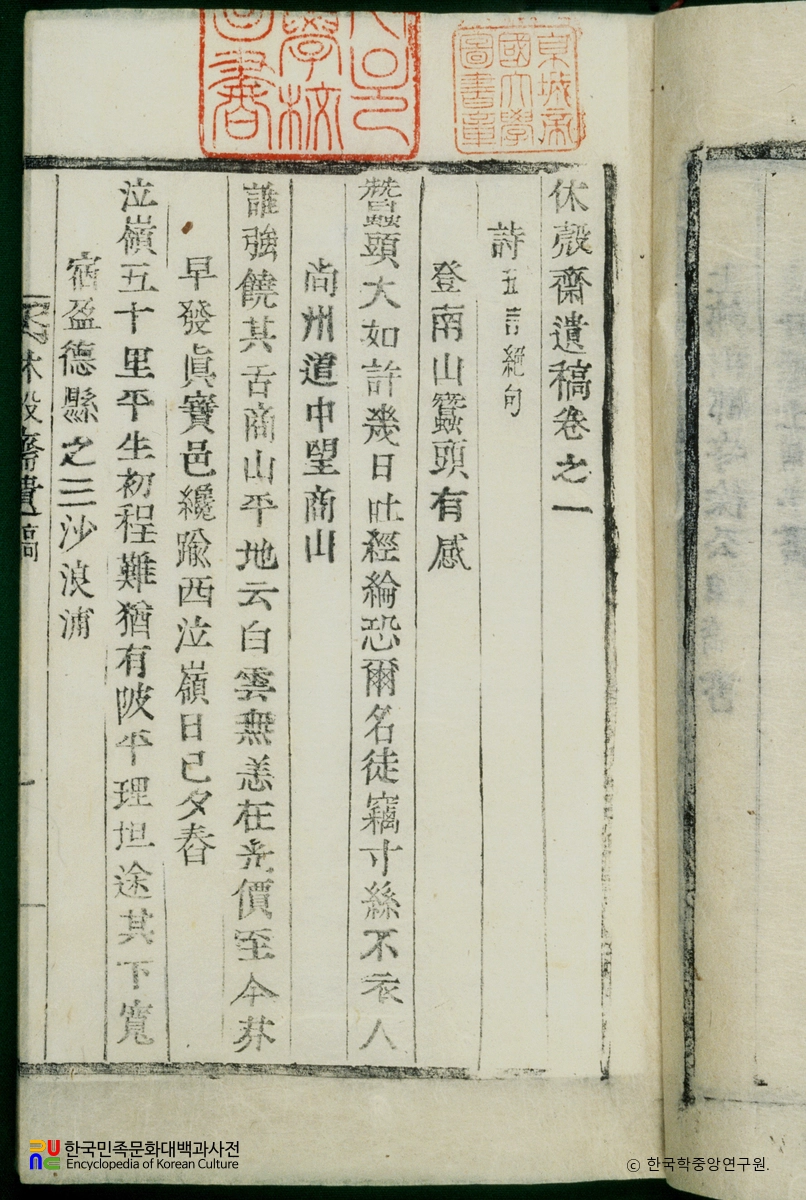 休殼齋遺稿卷之一
詩 五言絕句
登南山蠶頭有感
蠶頭大如許幾日吐經綸恐爾名徒竊寸絲不衣人
尙州道中望商山
誰強饒其舌商山平地云白雲無恙在 價至今芬
早發眞寶邑纔踰西泣嶺日已夕舂
泣嶺五十里平生初程難猶有陂平理坦途其下寬
宿盈德縣之三沙浪浦
休殼齋遺稿
一
京城帝
國大學
圖書章
學校
圖書
한국민족문화대백과사전
Encyclopedia of Korean Culture
ⓒ 한국학중앙연구원.